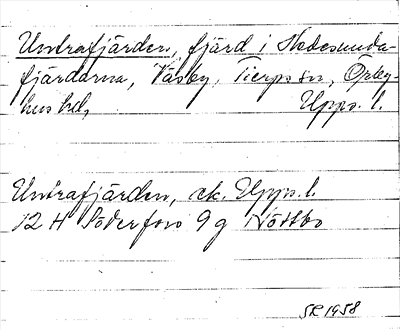 Untrafjärden, fjärd i Hedesunda-
fjärdarna, Väsby, Tierps sn, Örby-
hus hd, Upps. l.
Untrafjärden, ek. Upps. l.
12 H Söderfors 9 g Nöttbo
SR 1958